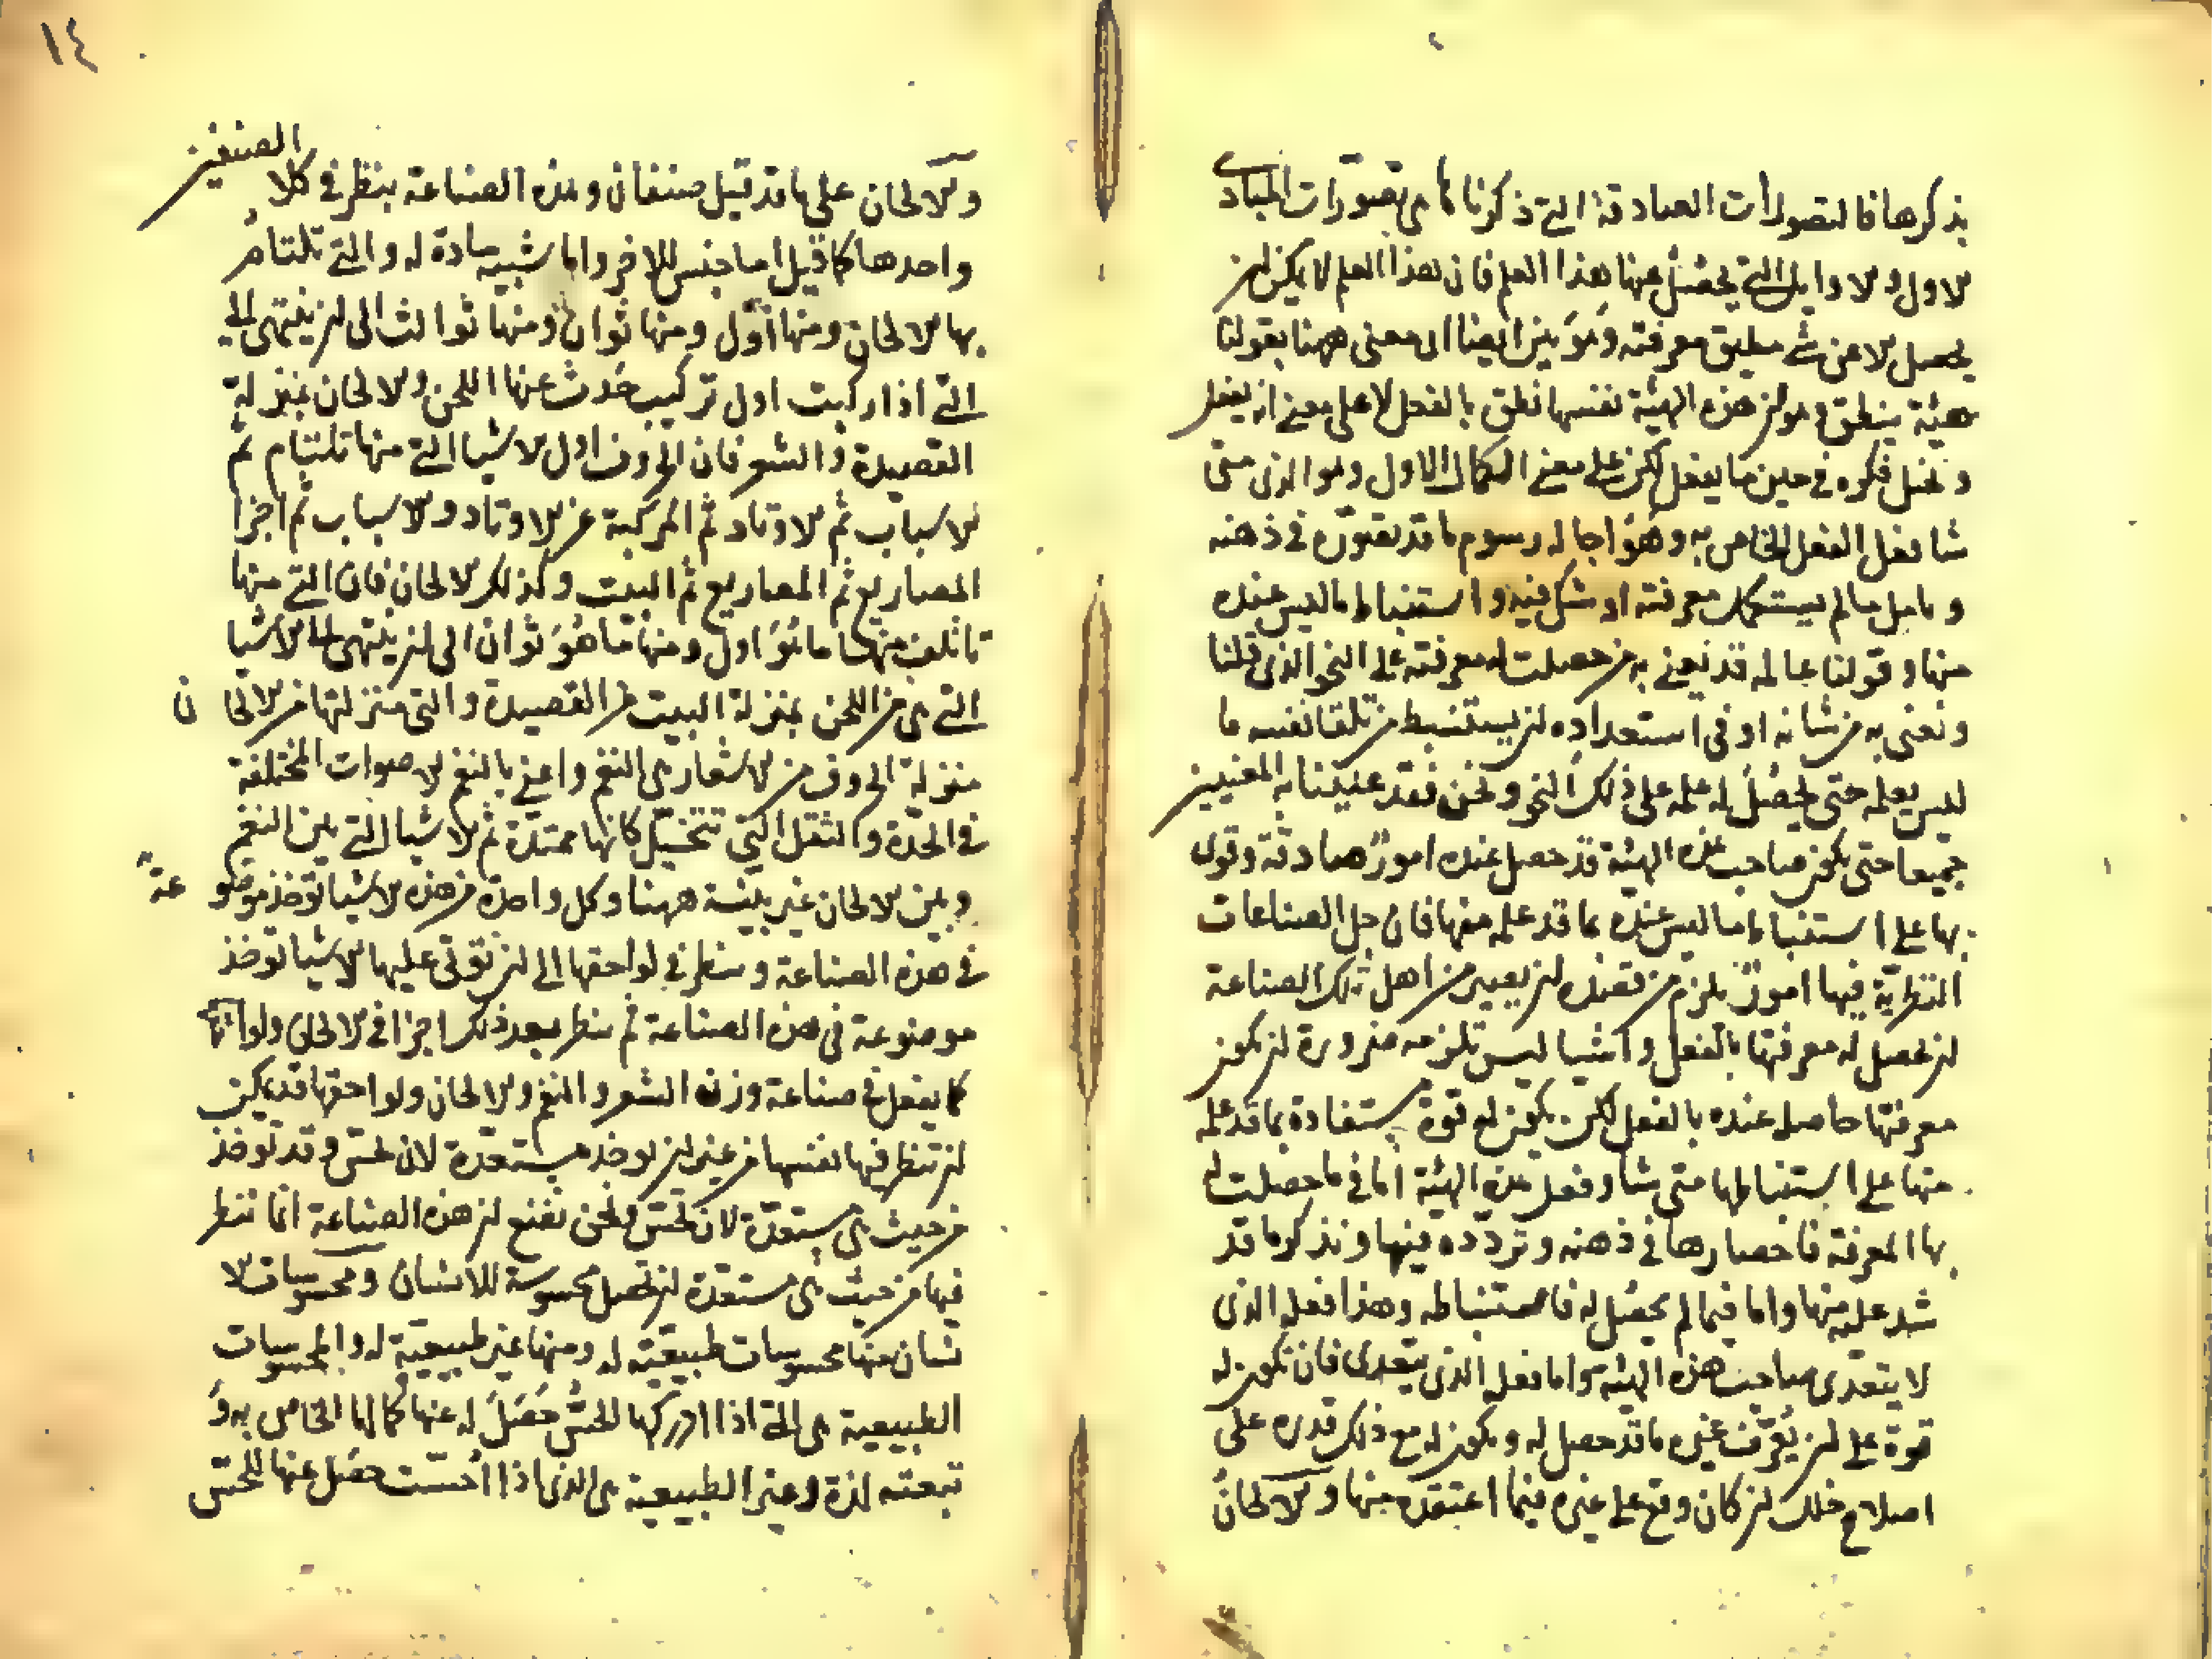 بذكرها فالتصورات الصادقة التي ذكرناها هي تصورات المبادي
الاول والاوايل التي يحصل عنها هذا العلم فان هذا العلم لا يمكن ان
يحصل الا عن شي سبق معرفته وهو بين ايضا اي معنى ههنا بقولنا
هيئة ينطق وهو ان هذه الهيئة نفسها نطق بالفعل لا على معنى انه يفعل
وتخيل فكره في حين ما يفعل لكن على معنى الكمال الاول وهو الذي متى
شا فعل الفعل الخاص به وهو اجالة رسوم ما قد تصوره في ذهنه
وتامل ما لم يستكمل معرفته او شك فيه واستنباط ما ليس عنده
منها وقولنا عالمة قد نعني به من حصلت له معرفته على النحو الذي قلنا
ونعني به من شانه او في استعداده ان يستنبط من تلقا نفسه ما
ليس يعلمه حتى يحصل له علمه على ذلك النحو ونحن فقد عنينا به المعنيين
جميعا حتى يكون صاحب هذه الهيئة قد حصل عنده امور صادقة وقوي
بها على استنباط ما ليس عنده بما قد علمه منها فان جل الصناعات
النظرية فيها امور يلزم من قصده ان يصير من اهل تلك الصناعة
ان تحصل له معرفتها بالفعل واشيا ليس تلزمه ضرورة ان تكون
معرفتها حاصلة عنده بالفعل لكن يكون له قوة مستفادة بما قد علمه
منها على استنباطها متى شا وفعل هذه الهيئة اما في ما حصلت له
بها المعرفة فاحضارها في ذهنه وتردده فيها وتذكر ما قد
شد عليه منها واما فيما لم يحصل له فاستنباطه وهذا فعله الذي
لا يتعدى صاحب هذه الهيئة واما فعله الذي يتعدى فان تكون له
قوة على ان يعرف غيره ما قد حصل له ويكون له مع ذلك قدرة على
اصلاح خلل ان كان وقع على غيره فيما اعتقده منها والالحان
١٤
والالحان على ما قد قيل صنفان وهذه الصناعة ينظر في كلا الصنفين
واحدها كما قيل اما جنس للاخر واما شبيه مادة له والتي تلتام
بها الالحان ومنها اول ومنها ثوان ومنها ثوالث الى ان ينتهي الى
التي اذا ركبت اول تركيب حدث عنها اللحن والالحان بمنزلة
القصيدة والشعر فان الحروف اول الاشيا التي منها تلتام ثم
الاسباب ثم الاوتاد ثم المركبة عن الاوتاد والاسباب ثم اجزا
المصاريع ثم المصاريع ثم البيت وكذلك الالحان فان التي منها
تاتلف منها ما هو اول ومنها ما هو ثوان الى ان ينتهي الى الاشيا
التي هي من اللحن بمنزلة البيت من القصيدة والتي منزلتها من الالحان
منزلة الحروف من الاشعار هي النغم واعني بالنغم الاصوات المختلفة
في الحدة والثقل التي تتخيل كانها ممتدة ثم الاشيا التي بين النغم
وبين الالحان غير بينة ههنا وكل واحدة من هذه الاشيا توخذ موضوعة
في هذه الصناعة وينظر في لواحقها الى ان نوتى عليها الاشيا توخذ
موضوعة في هذه الصناعة ثم ينظر بعد ذلك اجزا في الالحان ولواحقها
كما يفعل في صناعة وزن الشعر والنغم والالحان ولواحقها قد يمكن
ان تنظر فيها انفسها من غير ان توخذ مستعدة لان تحس وقد توخذ
من حيث هي مستعدة لان تحس ونحن نقنع ان هذه الصناعة انما تنظر
فيها من حيث هي مستعدة ان تحصل محسوسة للانسان ومحسوسات الا
نسان منها محسوسات طبيعية له ومنها غير طبيعية له والمحسوسات
الطبيعية هي التي اذا ادركها الحس حصل له عنها كمالها الخاص به و
تبعته لذة وغير الطبيعية هي الذي اذا احست حصل عنها للحس